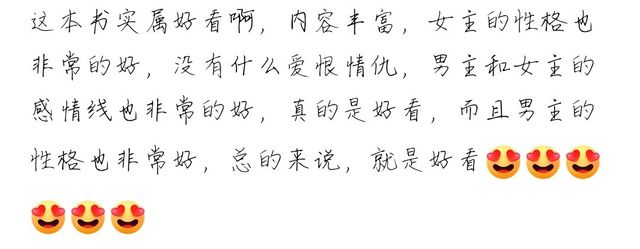 这本书实属好看啊，内容丰富，女主的性格也
非常的好，没有什么爱恨情仇，男主和女主的
感情线也非常的好，真的是好看，而且男主的
性格也非常好，总的来说，就是好看😍😍😍
😍😍😍